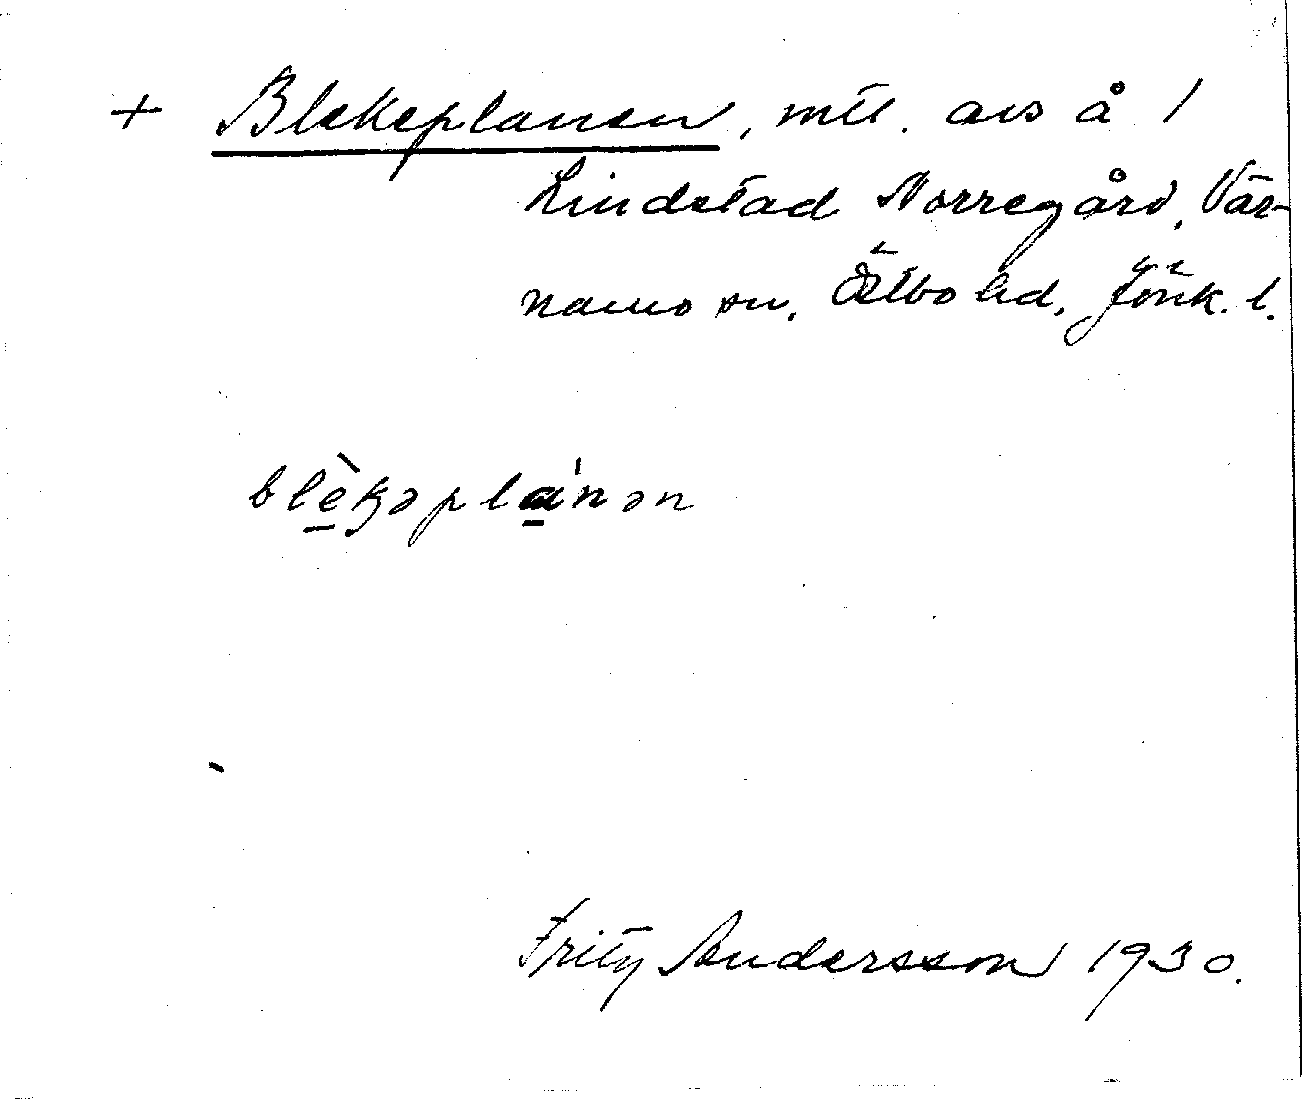 + Blekeplanen, mtl. avs å 1
Lindstad Norregård, Vär-
namo sn. Östbo hd, Jönk. l.
blèkəpla'nən
Fritz Andersson 1930.